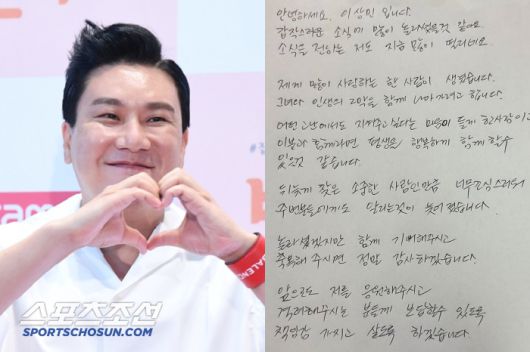 안녕하세요. 이상민 입니다.
갑작스러운 소식에 많이 놀라셨을것 같아요.
소식을 전하는 저도 지금 많이 떨리네요.
제게 많이 사랑하는 한 사람이 생겼습니다.
그녀와 인생의 2막을 함께 나아가려고 합니다.
어떤 고난에서도 지켜주고 싶다는 마음이 들게 한 사람이고
이분과 함께라면 평생을 행복하게 함께 할수
있을것 같습니다.
뒤늦게 찾은 소중한 사람인만큼 너무 조심스러워
주변분들에게도 알리는것이 늦어졌습니다.
놀라셨겠지만 함께 기뻐해주시고
축복해 주시면 정말 감사하겠습니다.
앞으로도 저를 응원해주시고
격려해주시는 분들께 보답할수 있도록
책임감 가지고 살도록 하겠습니다.
ram
ALENC
스포츠조선
SPORTSCHOSUN.COM